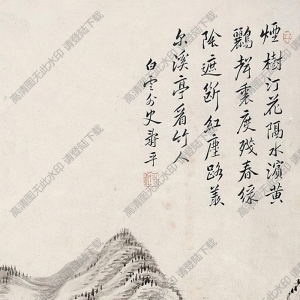 煙樹汀花隔水濱黃
鸝聲裏度殘春綠
陰遮斷紅塵路羨
尔溪亭看竹人
白雲外史壽平